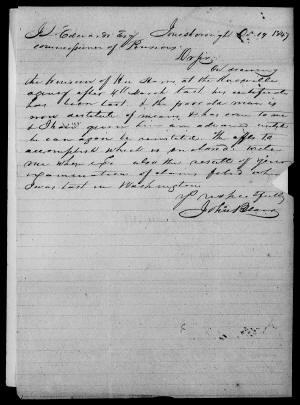 J. Edwards Esqr Jonesborough Oct 19 1847
commissioner of Pensions.
Dr Sir,
On drawing
the Pension of at the Knoxville
agency after 4th March last his certificate
has been lost. & the poor old man is
now destitute of means, & has come to me
& I have given him an advance until
he can again be The affts to
accomplish which is enclosed. write
me when also the result of your
examination of claims filed when
I was last in Washington
respectfully
John Blair